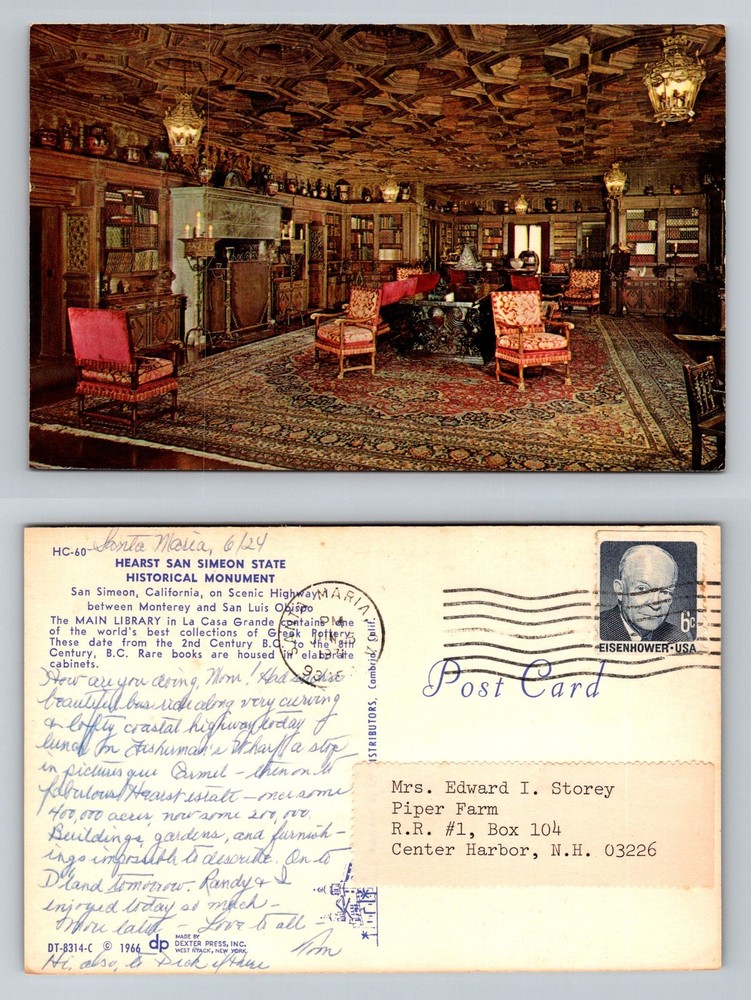 HC-60
Santa Maria, 6/24
HEARST SAN SIMEON STATE
HISTORICAL MONUMENT
San Simeon, California, on Scenic Highway 1
between Monterey and San Luis Obispo
The MAIN LIBRARY in La Casa Grande contains one
of the world's best collections of Greek Pottery.
These date from the 2nd Century B.C. to the 8th
Century, B.C. Rare books are housed in elaborate
cabinets.
How are you doing, Mom! Had such a
beautiful bus ride along very curving
& lofty coastal highway today
lunch on Fisherman's Wharf, a stop
in picturesque Carmel – then on to
fabulous Hearst estate – once some
400,000 acres, now some 200,000.
Buildings, gardens, and furnish-
ings impossible to describe. On to
D'land tomorrow. Randy & I
enjoyed today so much –
More later – Love to all –
Tom
Hi, also, to Dick &
DT-8314-C © 1966
dp
MADE BY
DEXTER PRESS, INC.
WEST NYACK, NEW YORK
ISTRIBUTORS, Cambria, Calif.
SANTA MARIA
PM
934
6c
EISENHOWER·USA
Post Card
Mrs. Edward I. Storey
Piper Farm
R.R. #1, Box 104
Center Harbor, N.H. 03226